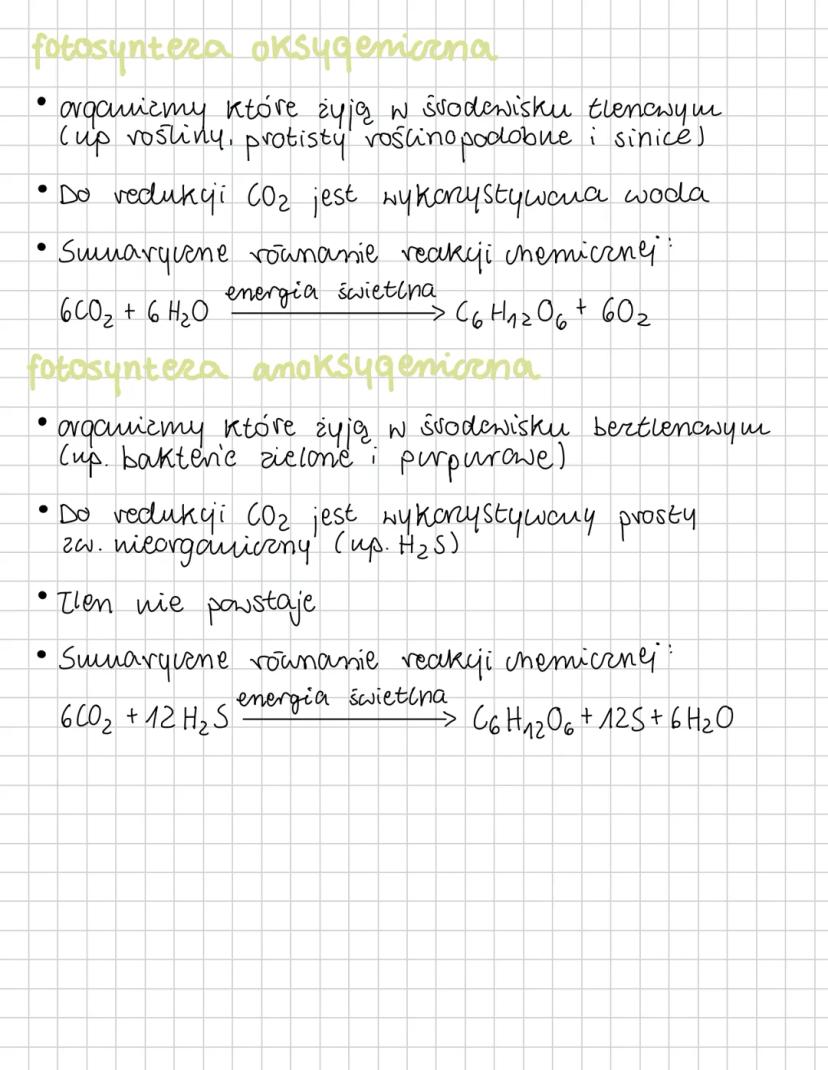 fotosynteza oksygeniczna
• organizmy które żyją w środowisku tlenowym
(np rośliny, protisty roślinopodobne i sinice)
• Do redukcji CO₂ jest wykorzystywana woda
• Sumaryczne równanie reakcji chemicznej:
energia świetlna
6CO₂ + 6 H₂O → C₆H₁₂O₆ + 6O₂
fotosynteza anoksygeniczna
• organizmy które żyją w środowisku beztlenowym
(np. bakterie zielone i purpurowe)
• Do redukcji CO₂ jest wykorzystywany prosty
zw. nieorganiczny (np. H₂S)
• Tlen nie powstaje
• Sumaryczne równanie reakcji chemicznej:
energia świetlna
6CO₂ + 12 H₂S → C₆H₁₂O₆ + 12S + 6H₂O